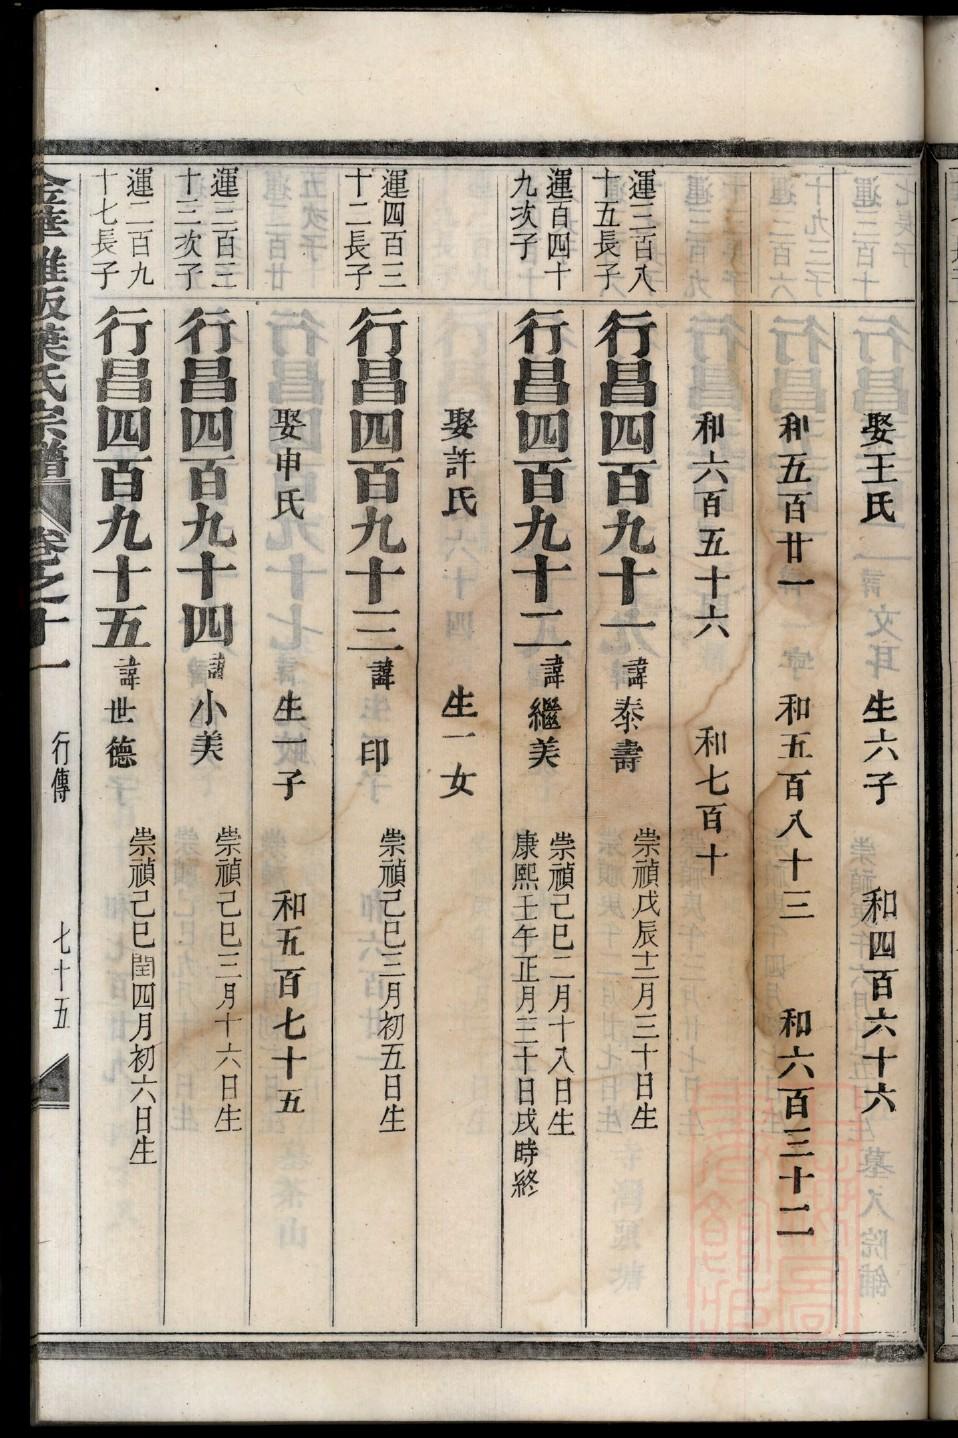 娶王氏 生六子 和四百六十六
和五百廿一 和五百八十三 和六百三十二
和六百五十六 和七百十
運三百八十五長子
行昌四百九十一 諱泰壽 崇禎戊辰十二月三十日生
運百四十九次子
行昌四百九十二 諱繼美 崇禎己巳二月十八日生
康熙壬午正月三十日戌時終
娶許氏 生一女
運四百三十二長子
行昌四百九十三 諱印 崇禎己巳三月初五日生
娶申氏 生一子 和五百七十五
運三百三十三次子
行昌四百九十四 諱小美 崇禎己巳三月十六日生
運二百九十七長子
行昌四百九十五 諱世德 崇禎己巳閏四月初六日生
金華 葉氏宗譜 卷之十一 行傳 七十五